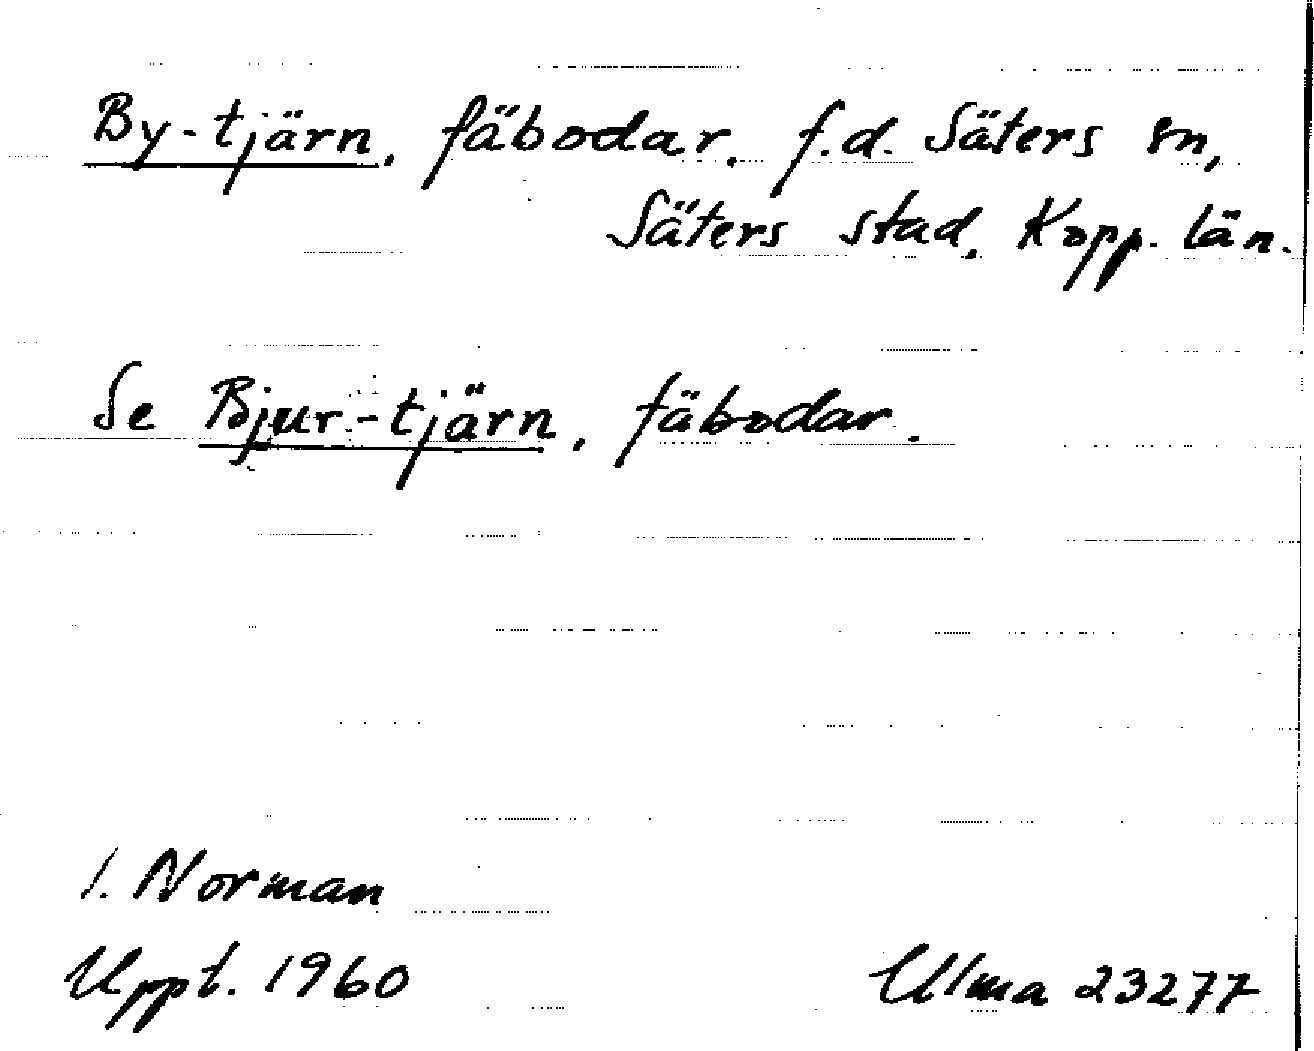 By-tjärn, fäbodar, f.d. Säters sn,
Säters stad, Kopp. län.
Se Bjur-tjärn, fäbodar.
I. Norman
Uppt. 1960 Ulma 23277